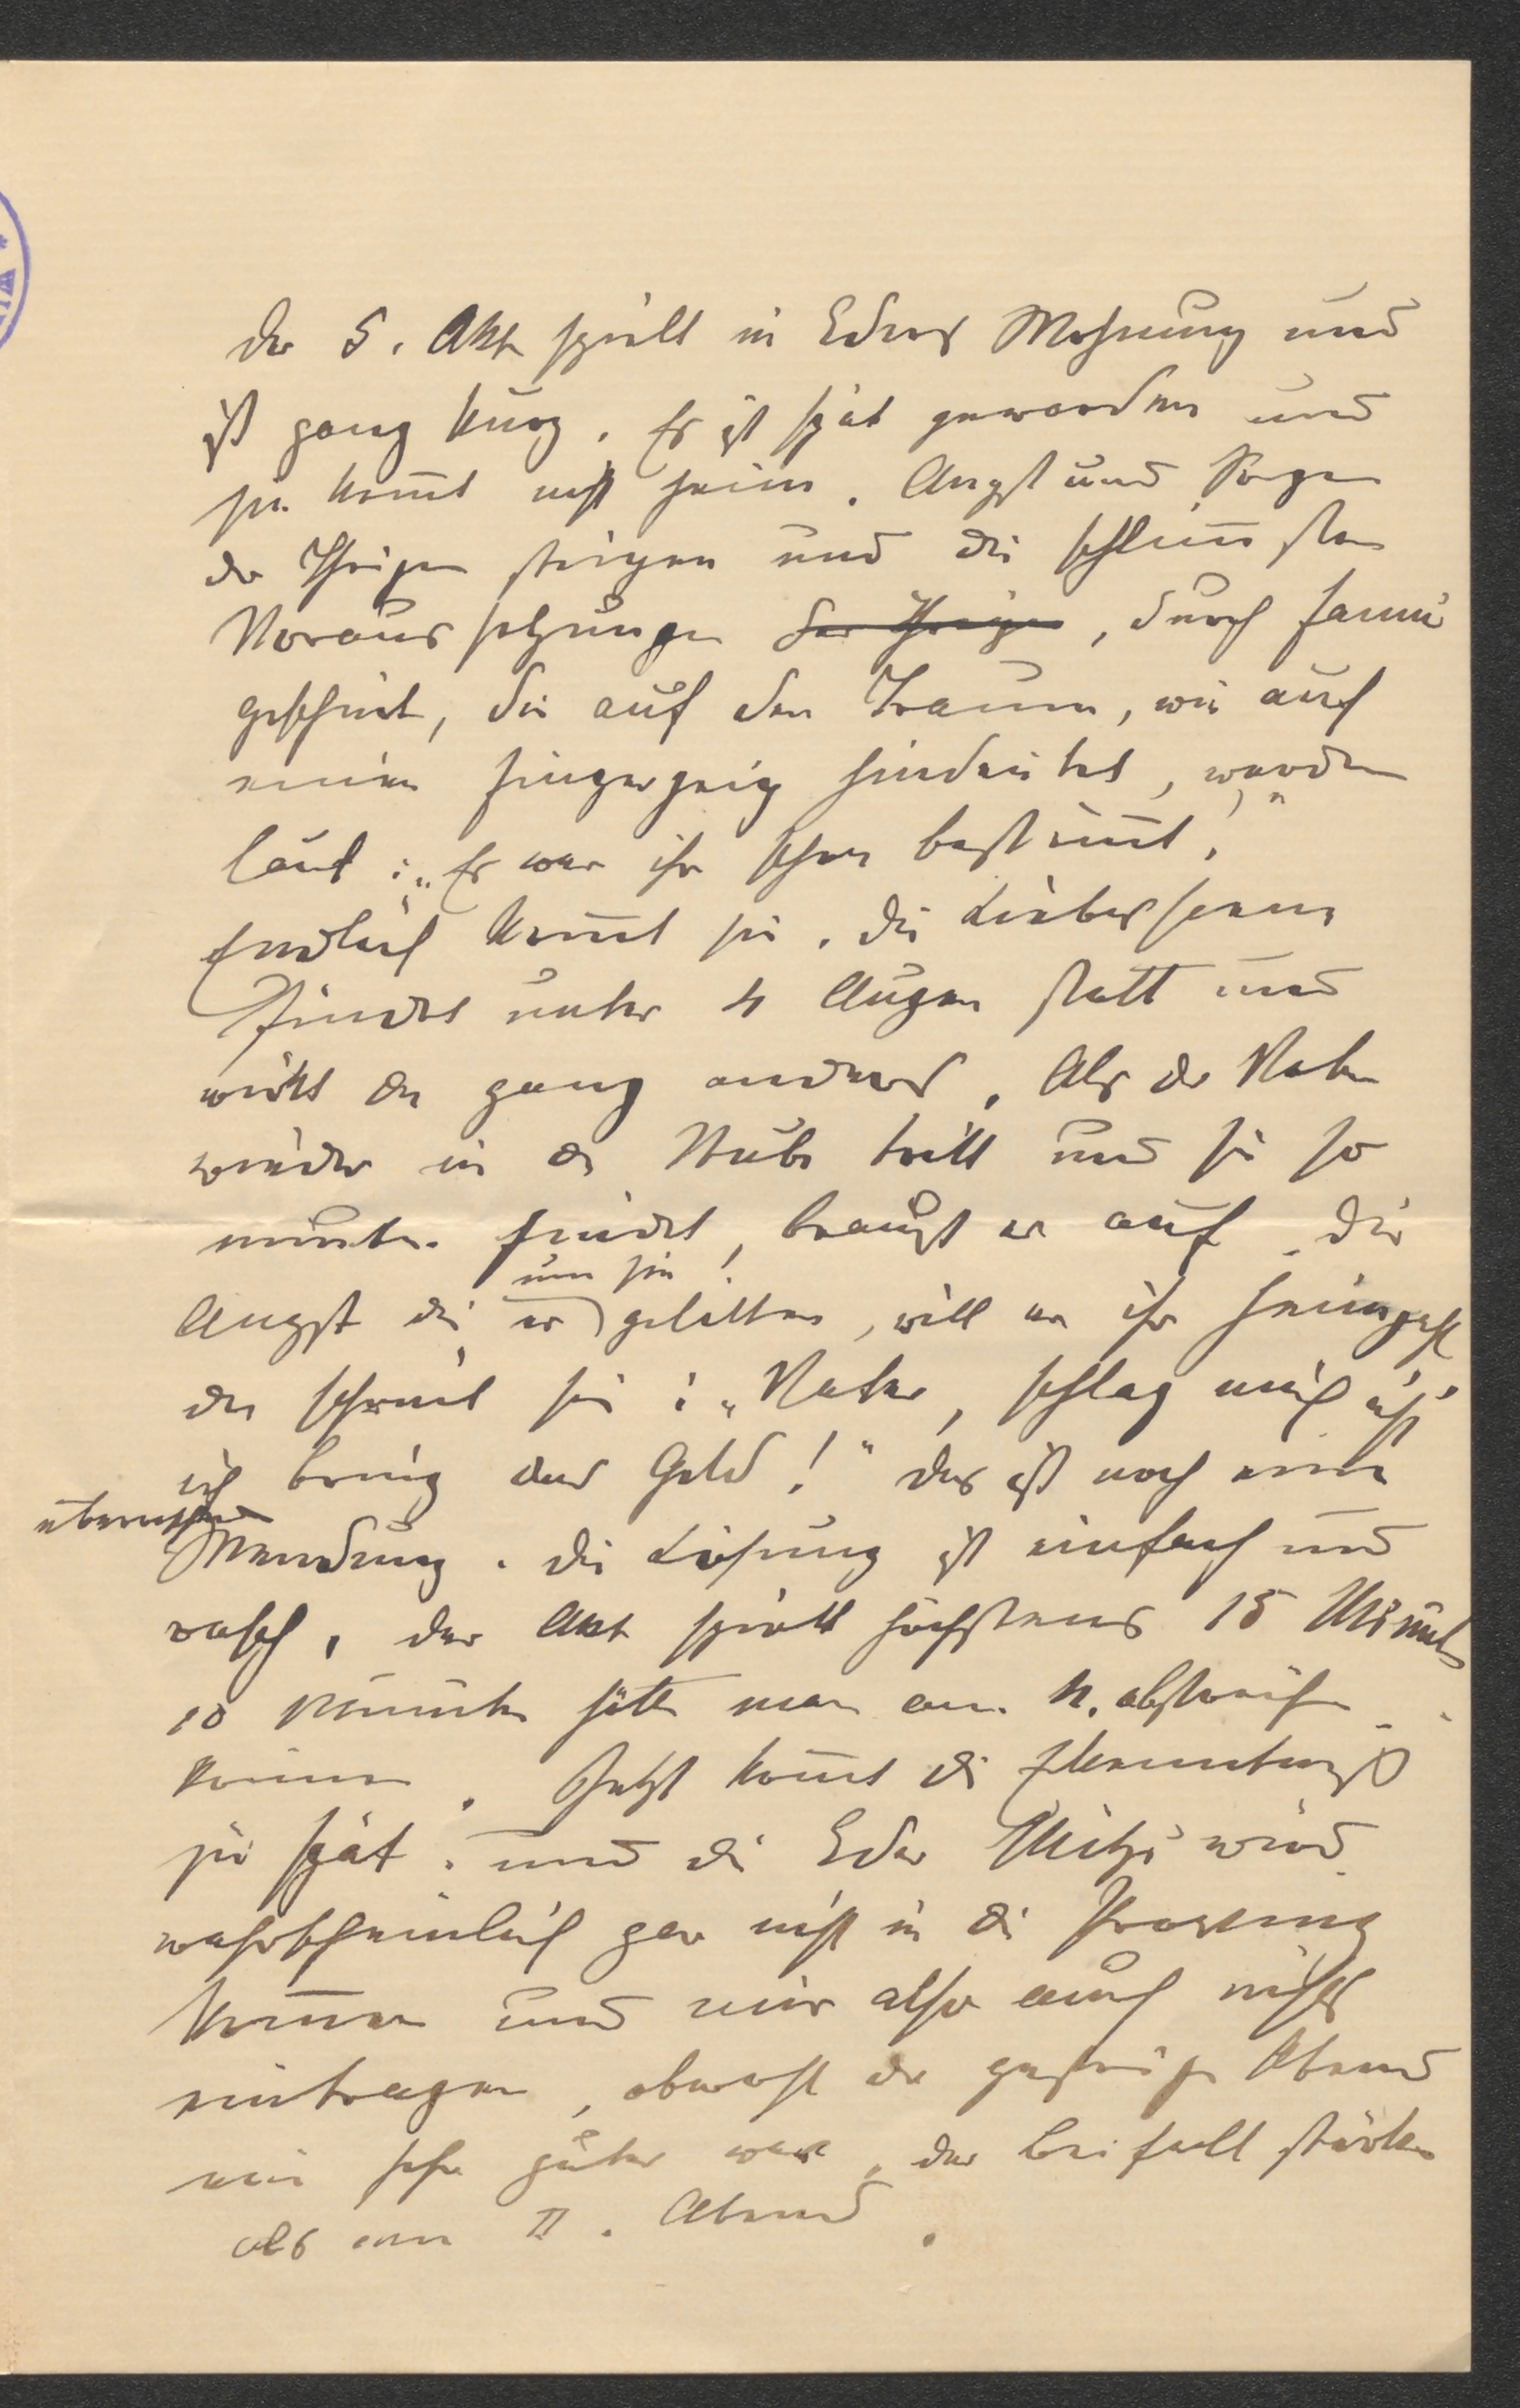 Der 5. Akt spielt in Eders Wohnung und
ist ganz kurz. Es ist spät geworden und
sie kom̅t nicht heim. Angst und Sorgen
der Ihrigen steigen und die schlim̅sten
Voraussetzungen der Ihrigen, durch Fanni
geschürt, die auf den Traum, wie auf
einen Fingerzeig hindeutet, werden
laut: „Es war ihr schon bestim̅t."
Endlich kom̅t sie. Die Liebesscene
findet unter 4 Augen statt und
wirkt da ganz anders. Als der Vater
wieder in die Stube tritt und sie so
munter findet, braust er auf. Die
Angst die er um sie gelitten, will er ihr
da schreit sie: „Vater, schlag mich nicht
ich bring das Geld!" Das ist noch eine
überraschende
Wendung. Die Lösung ist einfach und
rasch, der Akt spielt höchstens 15 Minuten
10 Minuten hätte man am 4. abstreichen
können. Jetzt kom̅t die Erkenntniß
zu spät. und die Eder Mitzi wird
wahrscheinlich gar nicht in die Provinz
kom̅en und mir also auch nichts
eintragen, obwohl der gestrige Abend
ein sehr guter war, der Beifall stärker
als am II. Abend.